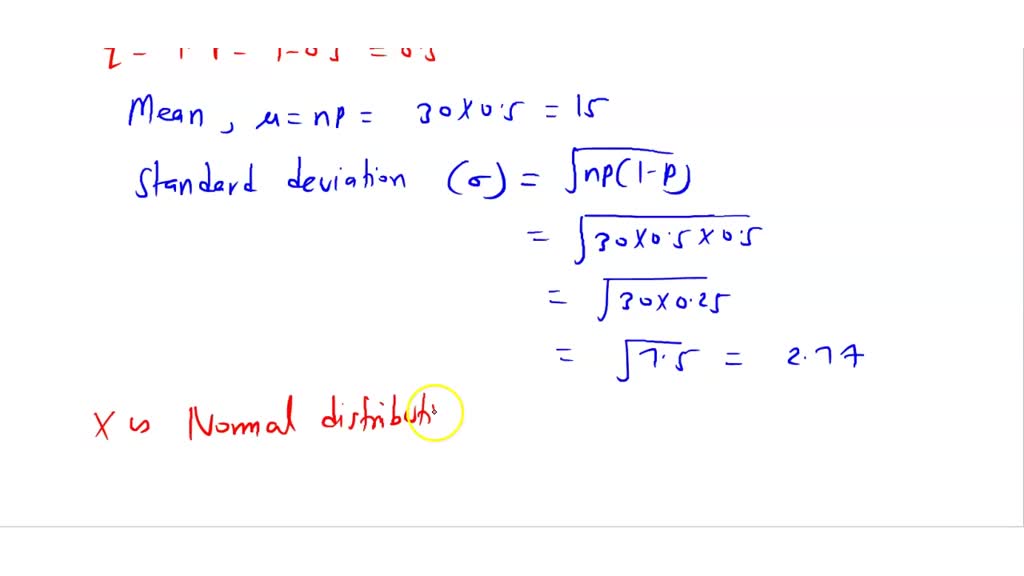 Mean, μ = np = 30×0.5 = 15
Standard deviation (σ) = √np(1-p)
= √30×0.5×0.5
= √30×0.25
= √7.5 = 2.74
X ~ Normal distributi